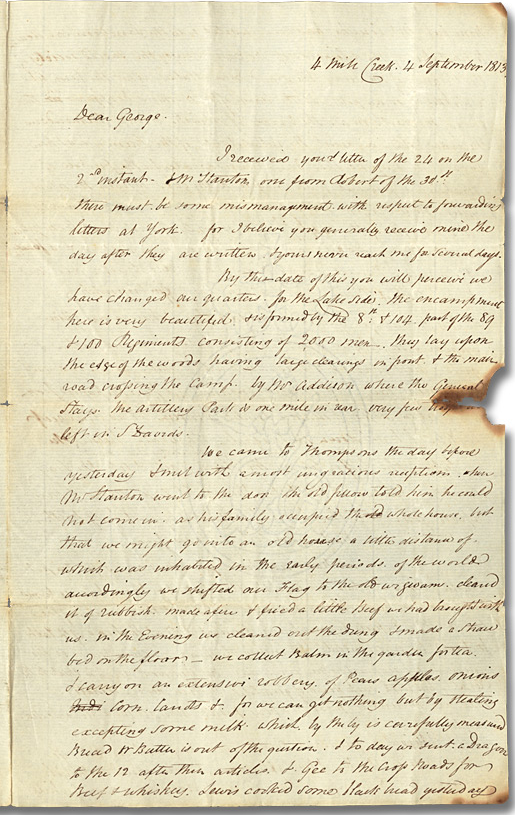 4 Mile Creek. 4 September 1813
Dear George.
I received your letter of the 24 on the
2nd instant - & Mr Stanton one from Robert of the 30th.
there must be some mismanagement with respect to forwarding
letters at York. for I believe you generally receive mine the
day after they are written. & yours never reach me for several days.
By the date of this you will perceive we
have changed our quarters. for the Lake side. the encampment
here is very beautiful & is formed by the 8th & 104. part of the 89
& 100 Regiments consisting of 2000 men. they lay upon
the edge of the woods having large clearings in front. & the main
road crossing the Camp. by Mr Addison where the General
stays. the artillery Park is one mile in rear, very few
left in St Davids.
We came to Thompsons the day before
yesterday & met with a most ungracious reception. when
Mr Stanton went to the door the old fellow told him he could
not come in. as his family occupied the old whole house. but
that we might go into an old house a little distance of.
which was inhabited in the early periods of the world
accordingly we shifted our Flag to the old wigwam. cleand
it of rubbish. made a fire & fried a little Beef we had brought with
us. in the Evening we cleaned out the dung & made a straw
bed on the floor - we collect Balm in the garden for tea.
& carry on an extensive robbery of Pears apples. onions
Indi Corn. Carrots &. for we can get nothing but by stealing
excepting some milk. which by the by is carefully measured
Bread & Butter is out of the question. & to day we sent a Dragon
to the 12 after these articles. & Gee to the Cross Roads for
Beef & whiskey. Lewis cooked some black bread yesterday